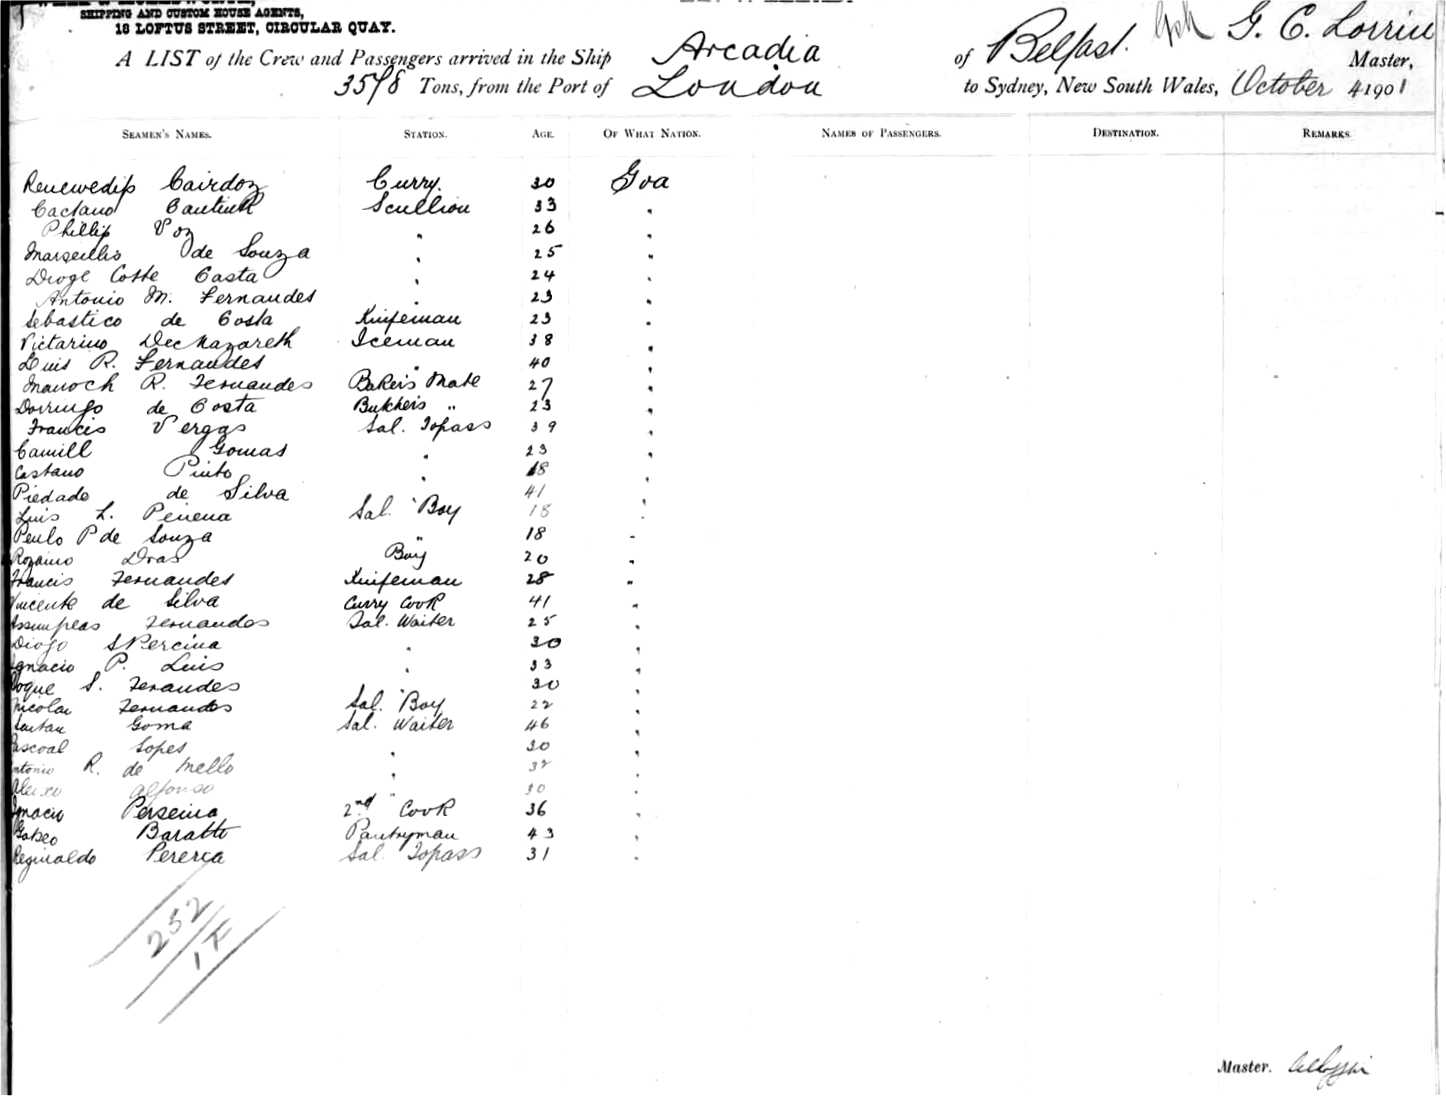 SHIPPING AND CUSTOM HOUSE AGENTS,
18 LOFTUS STREET, CIRCULAR QUAY.
A LIST of the Crew and Passengers arrived in the Ship Arcadia of Belfast. G. C. Lorrin Master,
Tons, from the Port of London to Sydney, New South Wales, October 4 1901
SEAMEN'S NAMES. STATION. AGE. OF WHAT NATION. NAMES OF PASSENGERS. DESTINATION. REMARKS.
Cairdoz Curry. 30 Goa
Caetano Scullion 33 "
Phillip Voz " 26 "
Marsellis de Souza " 25 "
Costa " 24 "
Antonio M. Fernandes " 23 "
Sebastico de Costa Knifeman 23 "
Victarino Dec Nazareth Iceman 38 "
Luis R. Fernandes " 40 "
Manoch R. Fernandes Baker's Mate 27 "
Domingo de Costa Butcher's " 23 "
Francis Verggs Sal. Topass 39 "
Camill Gomas " 23 "
Castano Pinto " 18 "
Piedade de Silva 41 "
Luis L. Sal. Boy 18 "
Peulo P de Souza " 18 "
Rozario Dias Boy 20 "
Francis Fernandes Knifeman 28 "
Vincente de Silva Curry Cook 41 "
Fernandes Sal. Waiter 25 "
Diogo " 30 "
Ignacio P. Luis " 33 "
Roque S. Fernandes " 30 "
Nicolau Fernandes Sal. Boy 22 "
Goma Sal. Waiter 46 "
Pascoal Lopes " 30 "
Antonio R. de Mello " 32 "
Aleixo Alfonso " 30 "
Ignacio Perseira 2nd Cook 36 "
Baratto Pantryman 43 "
Reginaldo Pereria Sal. Topass 31 "
252
Master.